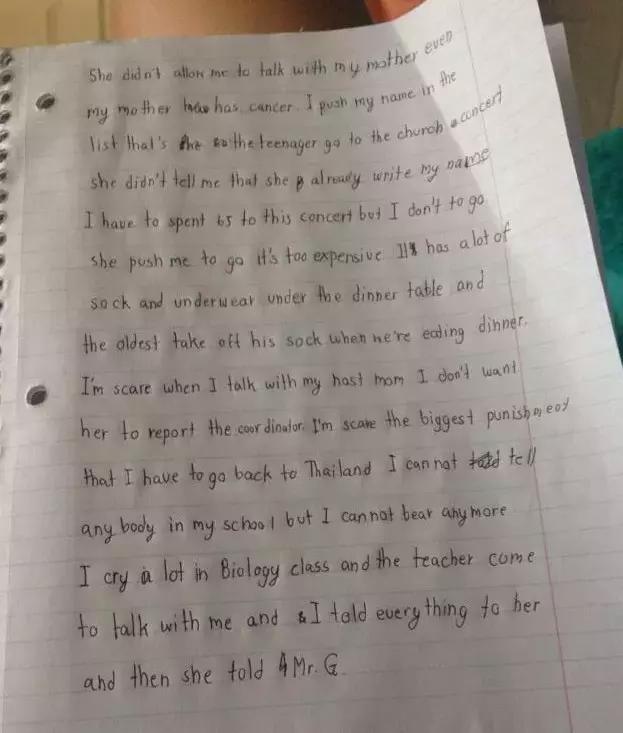 She didn't allow me to talk with my mother even
my mother has cancer. I push my name in the
list that's the teenager go to the church concert
she didn't tell me that she already write my name
I have to spent 65 to this concert but I don't to go
she push me to go it's too expensive. It has a lot of
sock and underwear under the dinner table and
the oldest take off his sock when we're eating dinner.
I'm scare when I talk with my host mom I don't want
her to report the coordinator. I'm scare the biggest punishment
that I have to go back to Thailand I can not tell
any body in my school but I cannot bear any more
I cry a lot in Biology class and the teacher come
to talk with me and I told every thing to her
and then she told Mr. G.